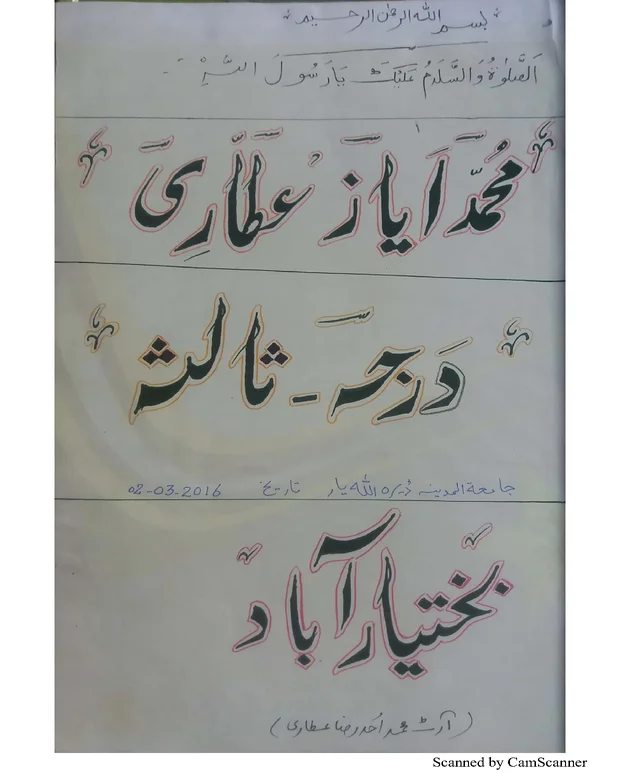 بسم اللہ الرحمٰن الرحیم
اَلصَّلٰوۃُ وَالسَّلَامُ عَلَیْکَ یَارَسُوْلَ اللہِ
مُحَمَّد اَیاز عطّارِی
دَرجہ ۔ ثالثہ
جامعۃ المدینہ ڈیرہ اللہ یار تاریخ 02-03-2016
بختیار آباد
(آرٹ محمد احمد رضا عطاری)
Scanned by CamScanner